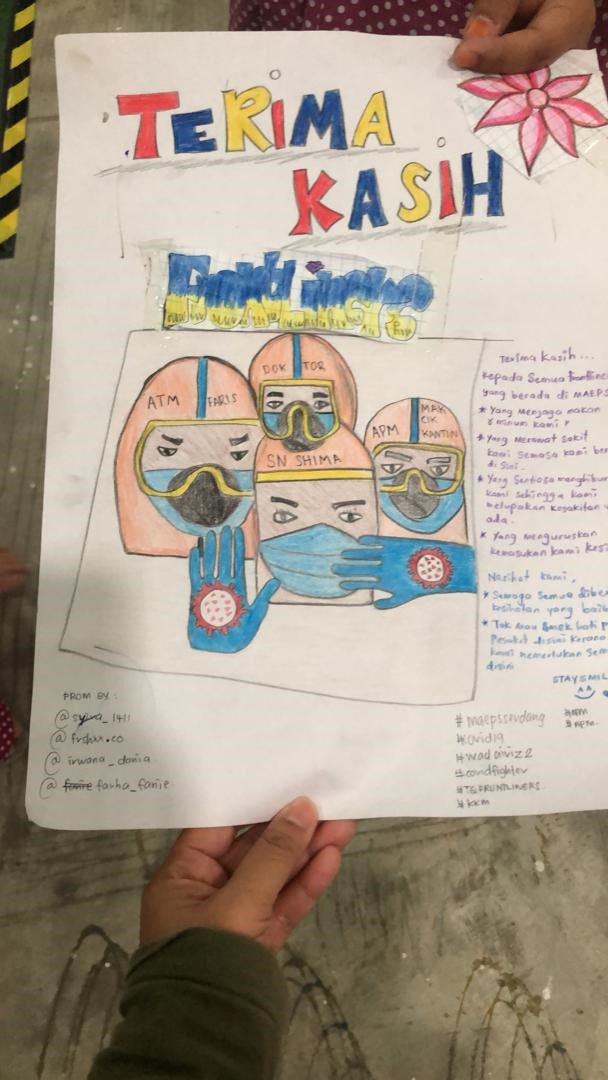 TERIMA
KASIH
Frontliners
ATM FARIS
DOK TOR
SN SHIMA
APM MAK
CIK
KANTIN
Terima kasih...
kepada Semua frontline
yang berada di MAEPS
* Yang Menjaga makan
minum kami
* Yang Merawat Sakit
kami Semasa kami ber
di sini.
* Yang Sentiasa menghibur
kami sehingga kami
melupakan kesakitan
ada.
* Yang menguruskan
kemasukan kami kesi
Nasihat kami,
* Semoga Semua dibe
kesihatan yang baik
* Tak mau amek hati
Pesakit disini kerana
kami memerlukan Sem
disini
STAY SMIL
FROM BY :
@ syira_1411
@ frshxx.co
@ irwana_dania
@ farha_farie
#maepsserdang
#covid19
#wad aiviz2
#covidfighter
#TQFRUNTLINERS.
#kkm
#atm
#apm.